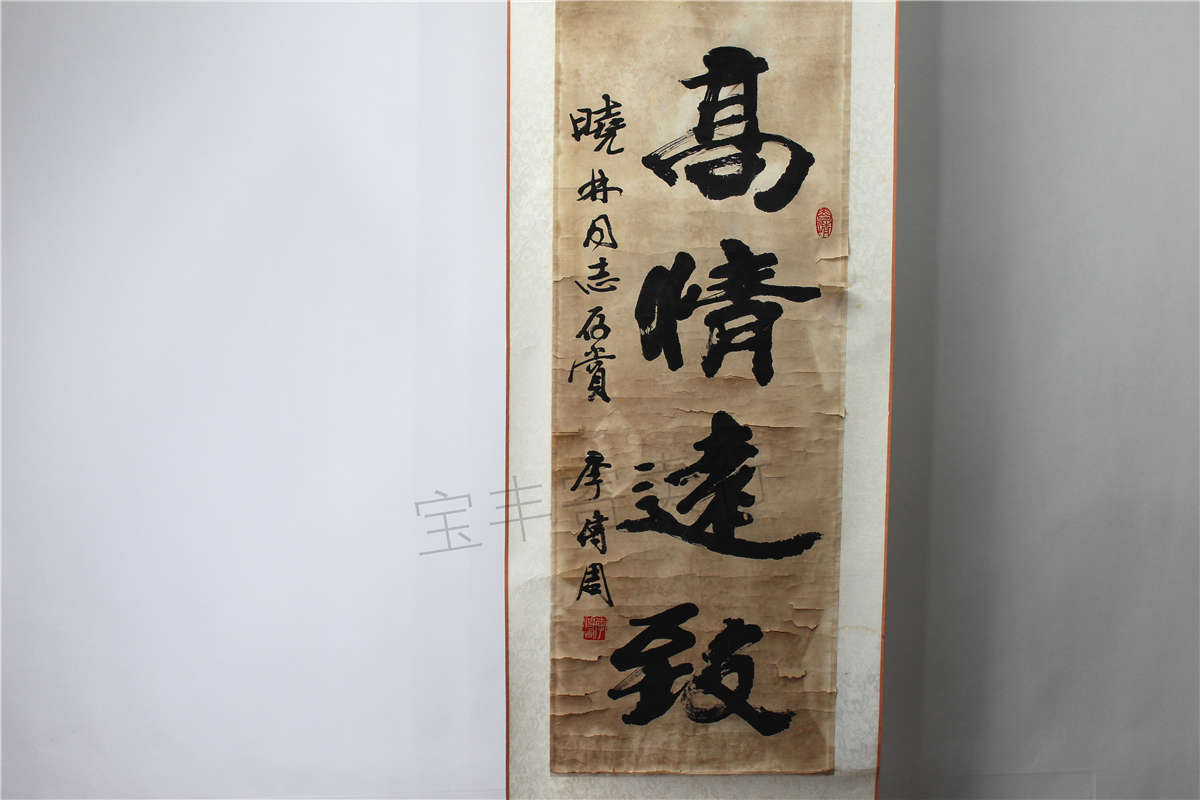 高情達致
曉林同志存賞
李傳周
宝丰